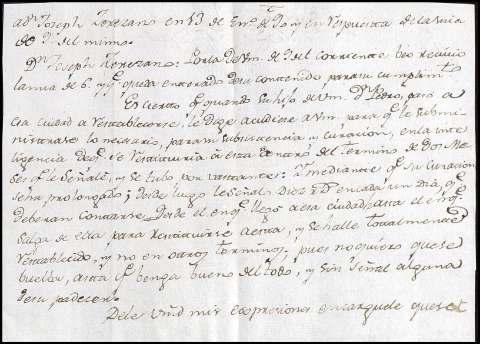 a Dn. Joseph Lorezano en 13 de En.o de 70 y en respuesta de la suia
de 7 del mismo.
Dn. Joseph Lorezano: Por la de Vm. de 7 del corriente veo recivio
la mia de 6. y q.e queda enterado de su contenido para su cumplim.to
Es cierto q.e quando su hijo de Vm. Dn. Pedro, pasó a
esa ciudad a restablecerse, le dige acudiere a Vm. para q.e le submi-
nistrase lo necesario, para su subsistencia y curacion, en la inte
ligencia de q.e se restituiria a esta dentro del termino de dos Me-
ses q.e le señalé, y se tubo por bastante: Y mediante q.e su curacion
será prolongada; desde luego le señalo Diez rrs en cada un Dia, q.e
deberan contarse desde el en q.e llegó a esa ciudad, asta el en q.e
salga de ella para restituirse a esta, y se halle totalmente
restablecido, y no en otros terminos; pues no quiero que se
buelba, asta q.e benga bueno del todo, y sin señal alguna
de su padecer.
Dele Vmd mis expresiones encarguele que se